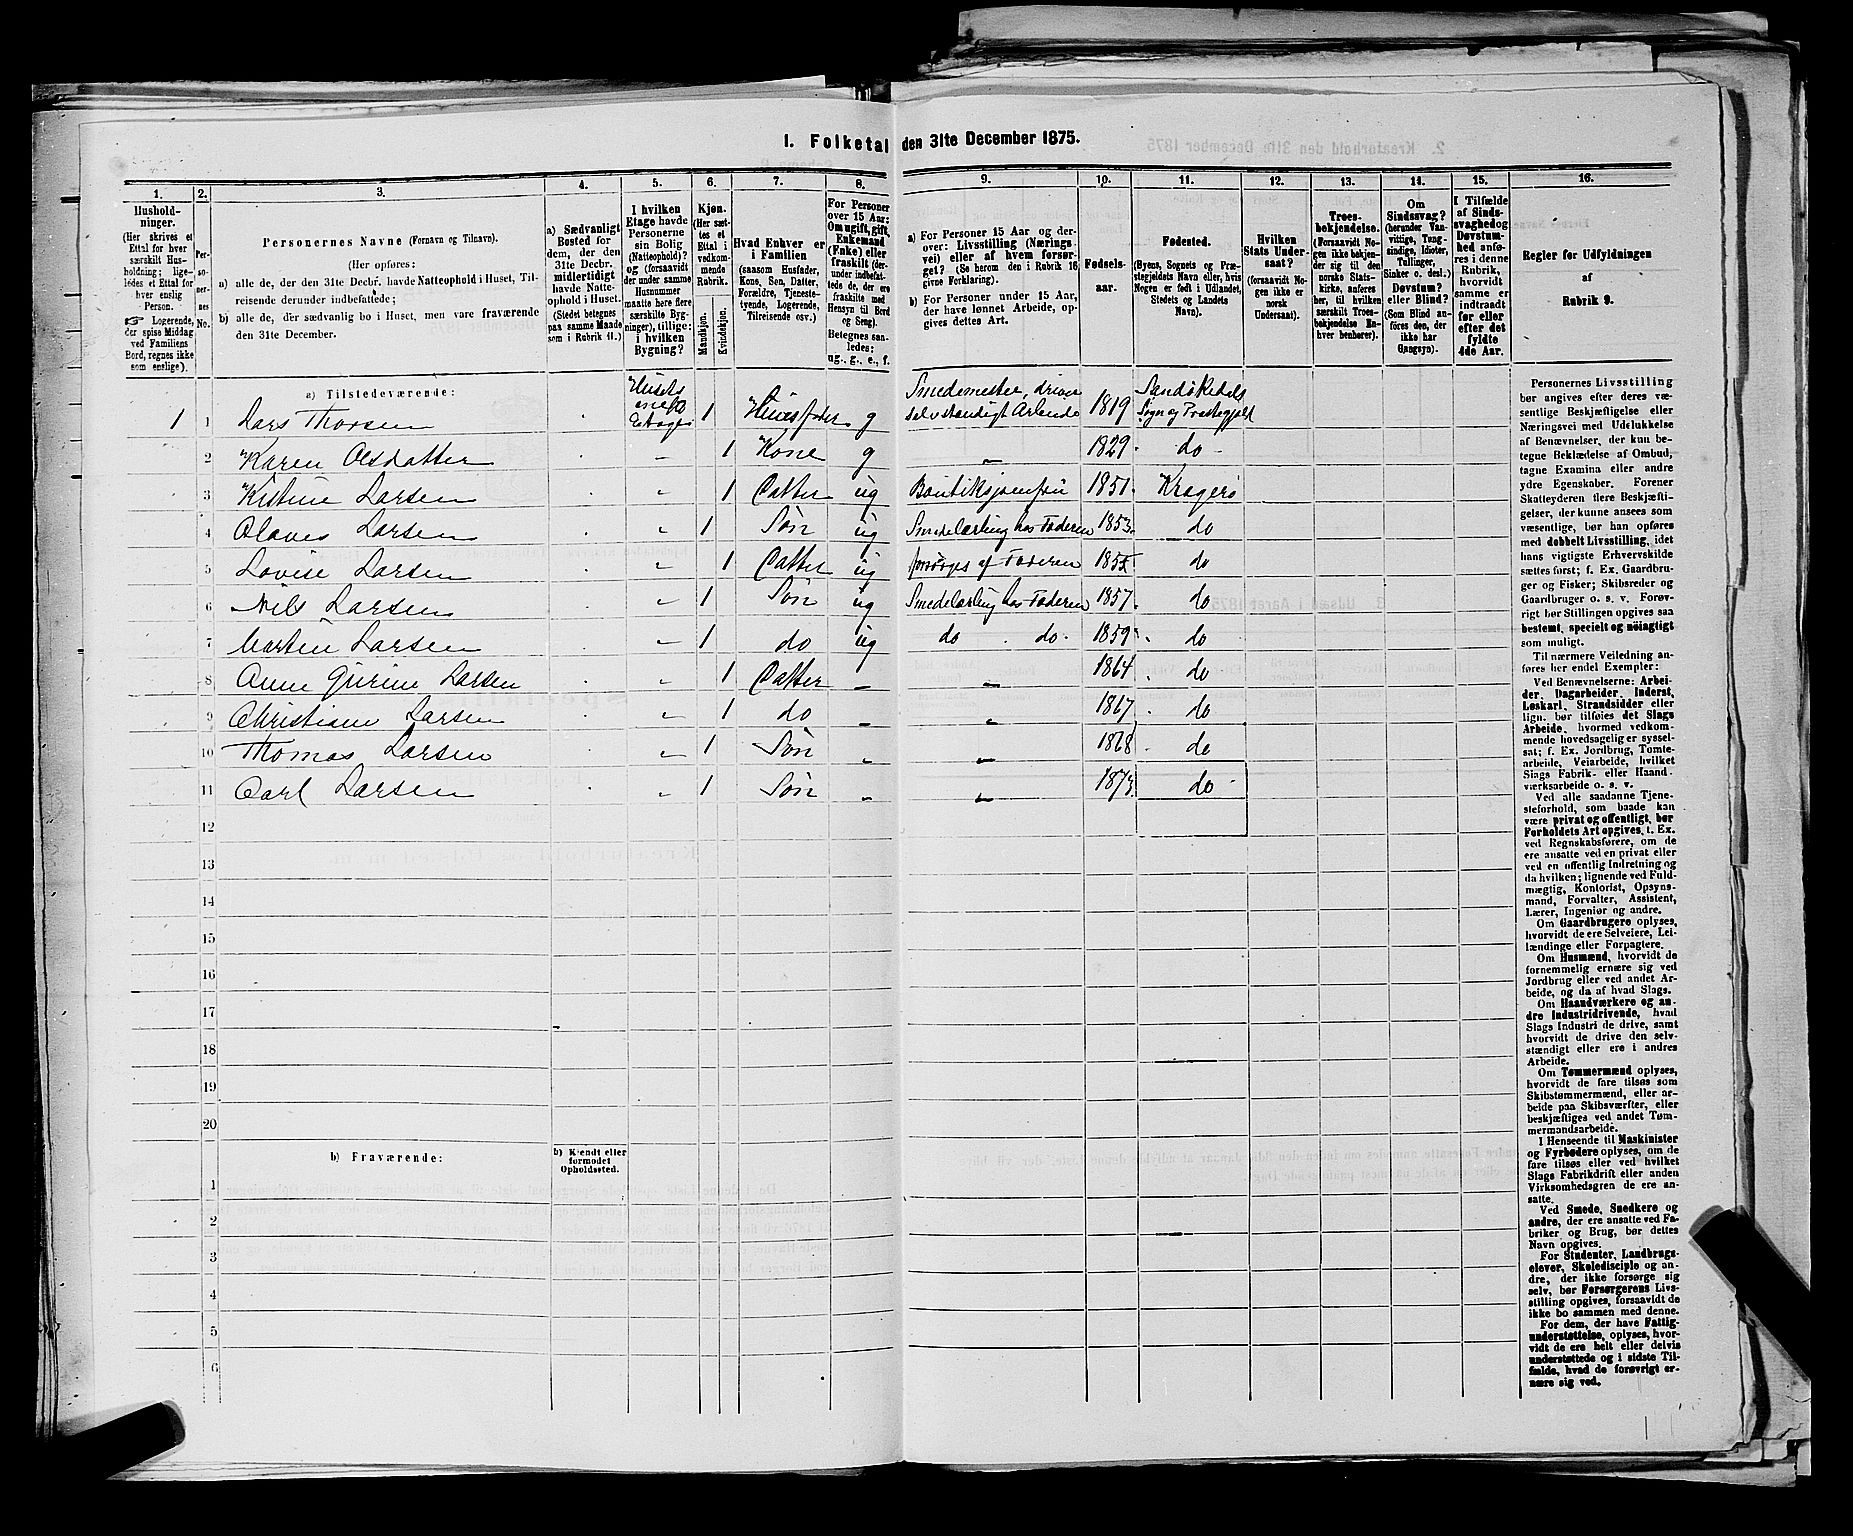 1. Folketal den 31te December 1875.
1. 2. 3. 4. 5. 6. 7. 8. 9. 10. 11. 12. 13. 14. 15. 16.
Husholdninger.
(Her skrives et
Ettal for hver
særskilt Husholdning;
ligeledes et Ettal for
hver enslig
Person.
☞ Logerende,
der spise Middag
ved Familiens
Bord, regnes ikke
som enslige).
Personernes No.
Personernes Navne (Fornavn og Tilnavn).
(Her opføres:
a) alle de, der den 31te Decbr. havde Natteophold i Huset, Tilreisende derunder indbefattede;
b) alle de, der sædvanlig bo i Huset, men vare fraværende
den 31te December.
a) Sædvanligt
Bosted for
dem, der den
31te Decbr.
midlertidigt
havde Natteophold i Huset.
(Stedet betegnes
paa samme Maade
som i Rubrik 11.)
I hvilken
Etage havde
Personerne
sin Bolig
(Natteophold)?
og (forsaavidt
der under samme
Husnummer
maatte høre flere
særskilte Bygninger), tillige:
i hvilken
Bygning?
Kjøn.
(Her sættes et
Ettal i
vedkommende
Rubrik.
Mandkjøn.
Kvindekjøn.
Hvad Enhver er
i Familien
(saasom Husfader,
Kone, Søn, Datter,
Forældre, Tjenestetyende, Logerende,
Tilreisende osv.)
For Personer
over 15 Aar:
Om ugift, gift,
Enkemand
(Enke) eller
fraskilt (derunder indbefattede de, der ere
fraskilte med
Hensyn til Bord
og Seng).
Betegnes saaledes:
ug., g., e., f.
a) For Personer 15 Aar og derover: Livsstilling (Næringsvei) eller af hvem forsørget? (Se herom den i Rubrik 16
givne Forklaring).
b) For Personer under 15 Aar,
der have lønnet Arbeide, opgives dettes Art.
Fødselsaar.
Fødested.
(Byens, Sognets og Præstegjeldets Navn eller, hvis
Nogen er født i Udlandet,
Stedets og Landets
Navn).
Hvilken
Stats Undersaat?
(forsaavidt Nogen ikke er
norsk
Undersaat).
Troesbekjendelse.
(Forsaavidt Nogen ikke bekjender sig til den
norske Statskirke, anføres
her, til hvilken
særskilt Troesbekjendelse Enhver henhører).
Om
Sindssvag?
(herunder Vanvittige, Tungsindige, Idioter,
Tullinger,
Sinker o. desl.)
Døvstum?
eller Blind?
(Som Blind anføres den, der
ikke har
Gangsyn).
I Tilfælde
af Sindssvaghed og
Døvstumhed anføres i denne
Rubrik,
hvorvidt
samme er
indtraadt
før eller
efter det
fyldte
4de Aar.
Regler for Udfyldningen
af
Rubrik 9.
a) Tilstedeværende:
1 1 Lars Thorsen Husets 1 Huusfader g Smedemester, driver selvstændigt Arbeide 1819 Sandøkedals Sogn og Præstegjeld
2 Karen Olsdatter " 1 Kone g " 1829 do
3 Kistine Larsen " 1 Datter ug 1851 Kragerø
4 Olaves Larsen " 1 Søn ug Smedelærling hos Faderen 1853 do
5 Lovise Larsen " 1 Datter ug forsørges af Faderen 1855 do
6 Nils Larsen " 1 Søn ug Smedelærling hos Faderen 1857 do
7 Martin Larsen " 1 do ug do do 1859 do
8 Anne Gurine Larsen " 1 Datter " " 1864 do
9 Christiane Larsen " 1 do " " 1867 do
10 Thomas Larsen " 1 Søn " " 1868 do
11 Carl Larsen " 1 Søn " " 1873 do
12
13
14
15
16
17
18
19
20
b) Fraværende: b) Kjendt eller
formodet
Opholdssted.
1
2
3
4
5
6
Personernes Livsstilling
bør angives efter deres væsentlige Beskjæftigelse eller
Næringsvei med Udelukkelse
af Benævnelser, der kun betegne Beklædelse af Ombud,
tagne Examina eller andre
ydre Egenskaber. Forener
Skatteyderen flere Beskjæftigelser, der kunne ansees som
væsentlige, bør han opføres
med dobbelt Livsstilling, idet
hans vigtigste Erhvervskilde
sættes først; f. Ex. Gaardbruger og Fisker; Skibsreder og
Gaardbruger o. s. v. Forøvrigt bør Stillingen opgives saa
bestemt, specielt og nøiagtigt
som muligt.
Til nærmere Veiledning anføres her endel Exempler:
Ved Benævnelserne: Arbeider, Dagarbeider, Inderst,
Løskarl, Strandsidder eller
lign. bør tilføies det Slags
Arbeide, hvormed vedkommende hovedsagelig er sysselsat; f. Ex. Jordbrug, Tomtearbeide, Veiarbeide, hvilket
Slags Fabrik- eller Haandværksarbeide o. s. v.
Ved alle saadanne Tjenesteforhold, som baade kan
være privat og offentligt, bør
Forholdets Art opgives, f. Ex.
ved Regnskabsførere, om de
ere ansatte ved en privat eller
ved en offentlig Indretning og
da hvilken; lignende ved Fuldmægtig, Kontorist, Opsynsmand, Forvalter, Assistent,
Lærer, Ingeniør og andre.
Om Gaardbrugere oplyses,
hvorvidt de ere Selveiere, Leilændinge eller Forpagtere.
Om Husmænd, hvorvidt de
fornemmelig ernære sig ved
Jordbrug eller ved andet Arbeide, og da af hvad Slags.
Om Haandværkere og andre Industridrivende, hvad
Slags Industri de drive, samt
hvorvidt de drive den selvstændigt eller ere i andres
Arbeide.
Om Tømmermænd oplyses,
hvorvidt de fare tilsøs som
Skibstømmermænd, eller arbeide paa Skibsværfter, eller
beskjæftiges ved andet Tømmermandsarbeide.
I Henseende til Maskinister
og Fyrbødere oplyses, om de
fare tilsøs eller ved hvilket
Slags Fabrikdrift eller anden
Virksomhedsgren de ere ansatte.
Ved Smede, Snedkere og
andre, der ere ansatte ved Fabriker og Brug, bør dettes
Navn opgives.
For Studenter, Landbrugselever, Skoledisciple og andre, der ikke forsørge sig
selv, bør Forsørgerens Livsstilling opgives, forsaavidt de
ikke bo sammen med denne.
For dem, der have Fattigunderstøttelse, oplyses, hvorvidt de ere helt eller delvis
understøttede og i sidste Tilfælde, hvad de forøvrigt ernære sig ved.